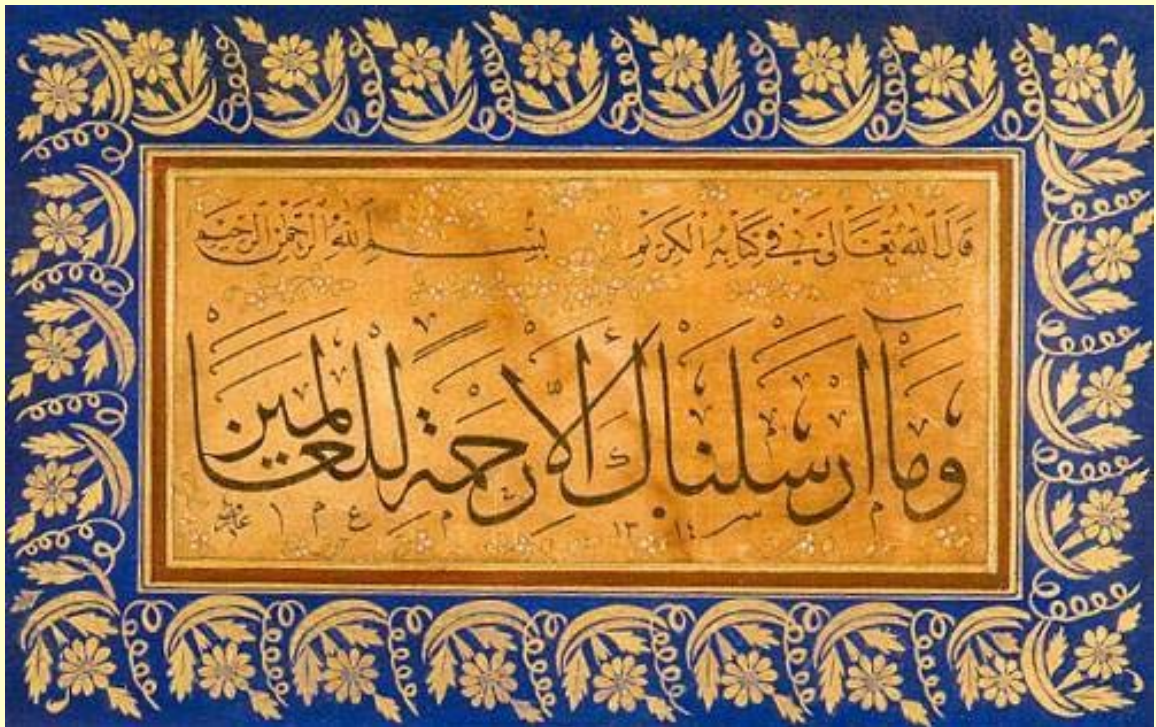 قَالَ اللّٰهُ تَعَالَى فِي كِتَابِهِ الْكَرِيمِ بِسْمِ اللّٰهِ الرَّحْمٰنِ الرَّحِيمِ
وَمَا اَرْسَلْنَاكَ اِلَّا رَحْمَةً لِلْعَالَمِينَ
١٣١٤